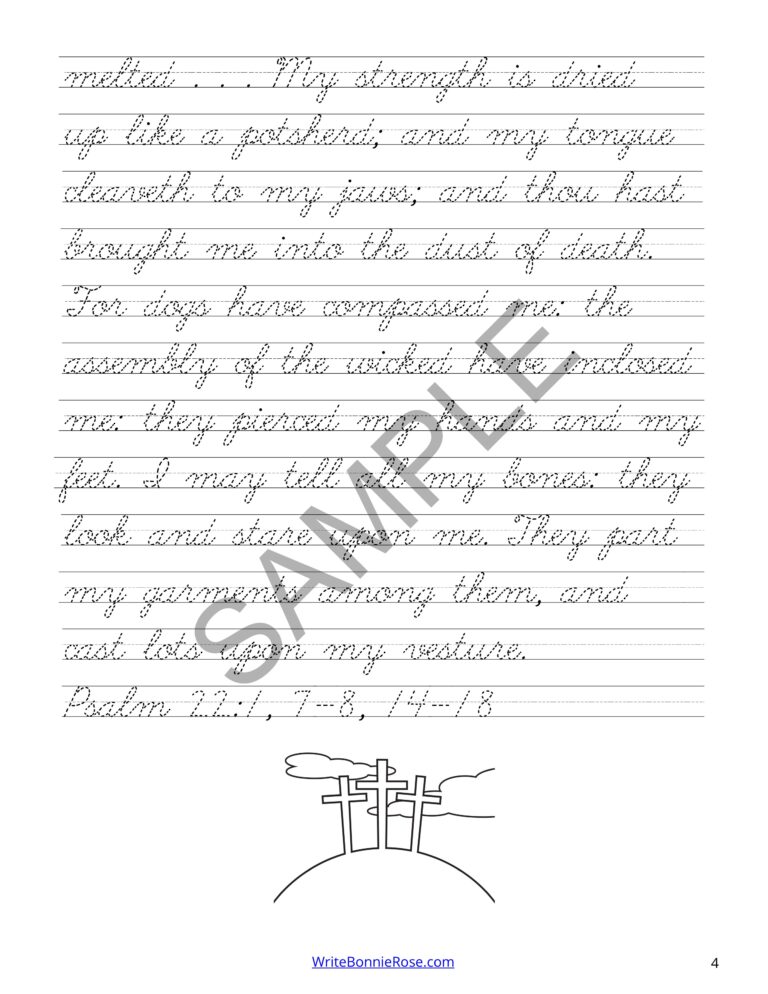 melted . . . My strength is dried
up like a potsherd; and my tongue
cleaveth to my jaws; and thou hast
brought me into the dust of death.
For dogs have compassed me: the
assembly of the wicked have inclosed
me: they pierced my hands and my
feet. I may tell all my bones: they
look and stare upon me. They part
my garments among them, and
cast lots upon my vesture.
Psalm 22:1, 7-8, 14-18
SAMPLE
WriteBonnieRose.com
4